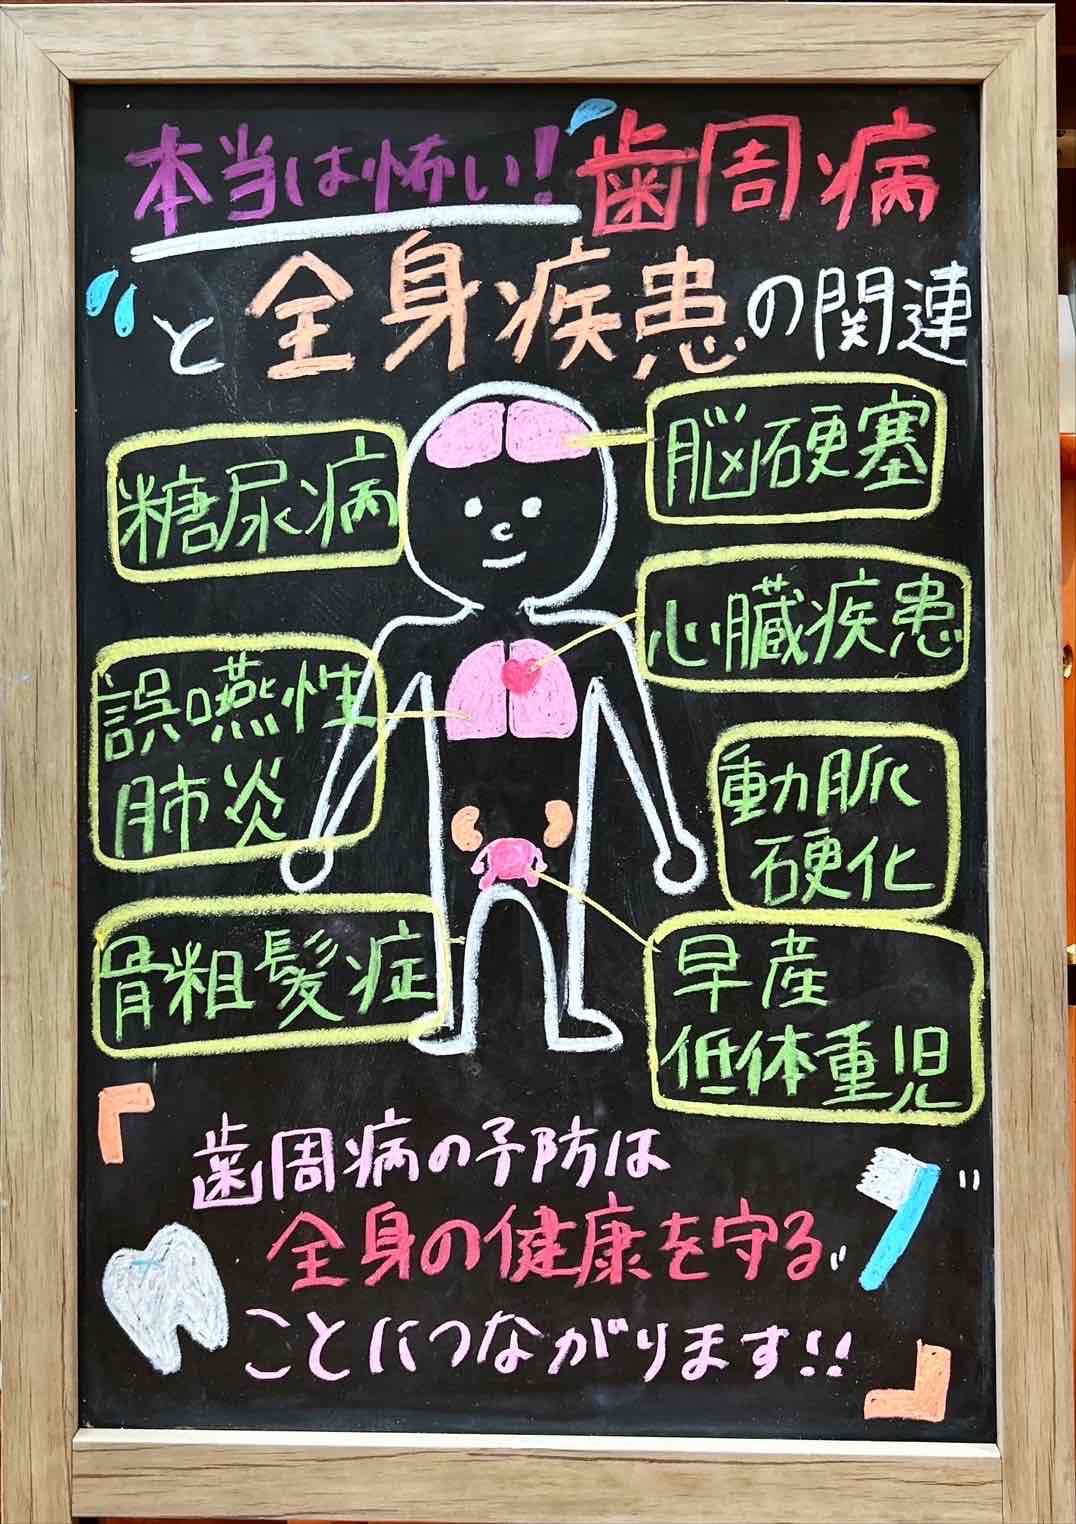 本当は怖い!歯周病
と全身疾患の関連
糖尿病
脳硬塞
心臓疾患
誤嚥性
肺炎
動脈
硬化
骨粗髪症
早産
低体重児
歯周病の予防は
全身の健康を守る
ことにつながります!!